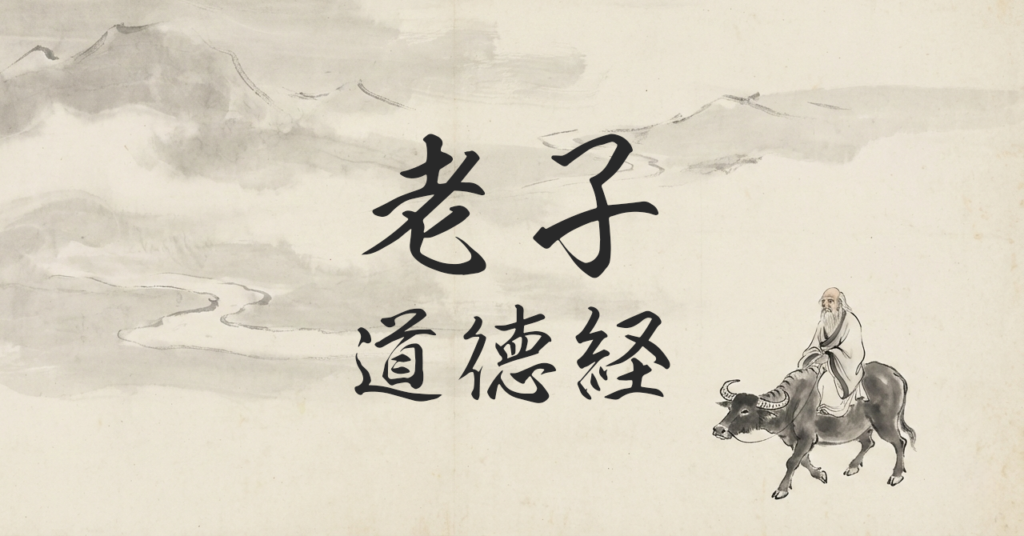 老子
道徳経